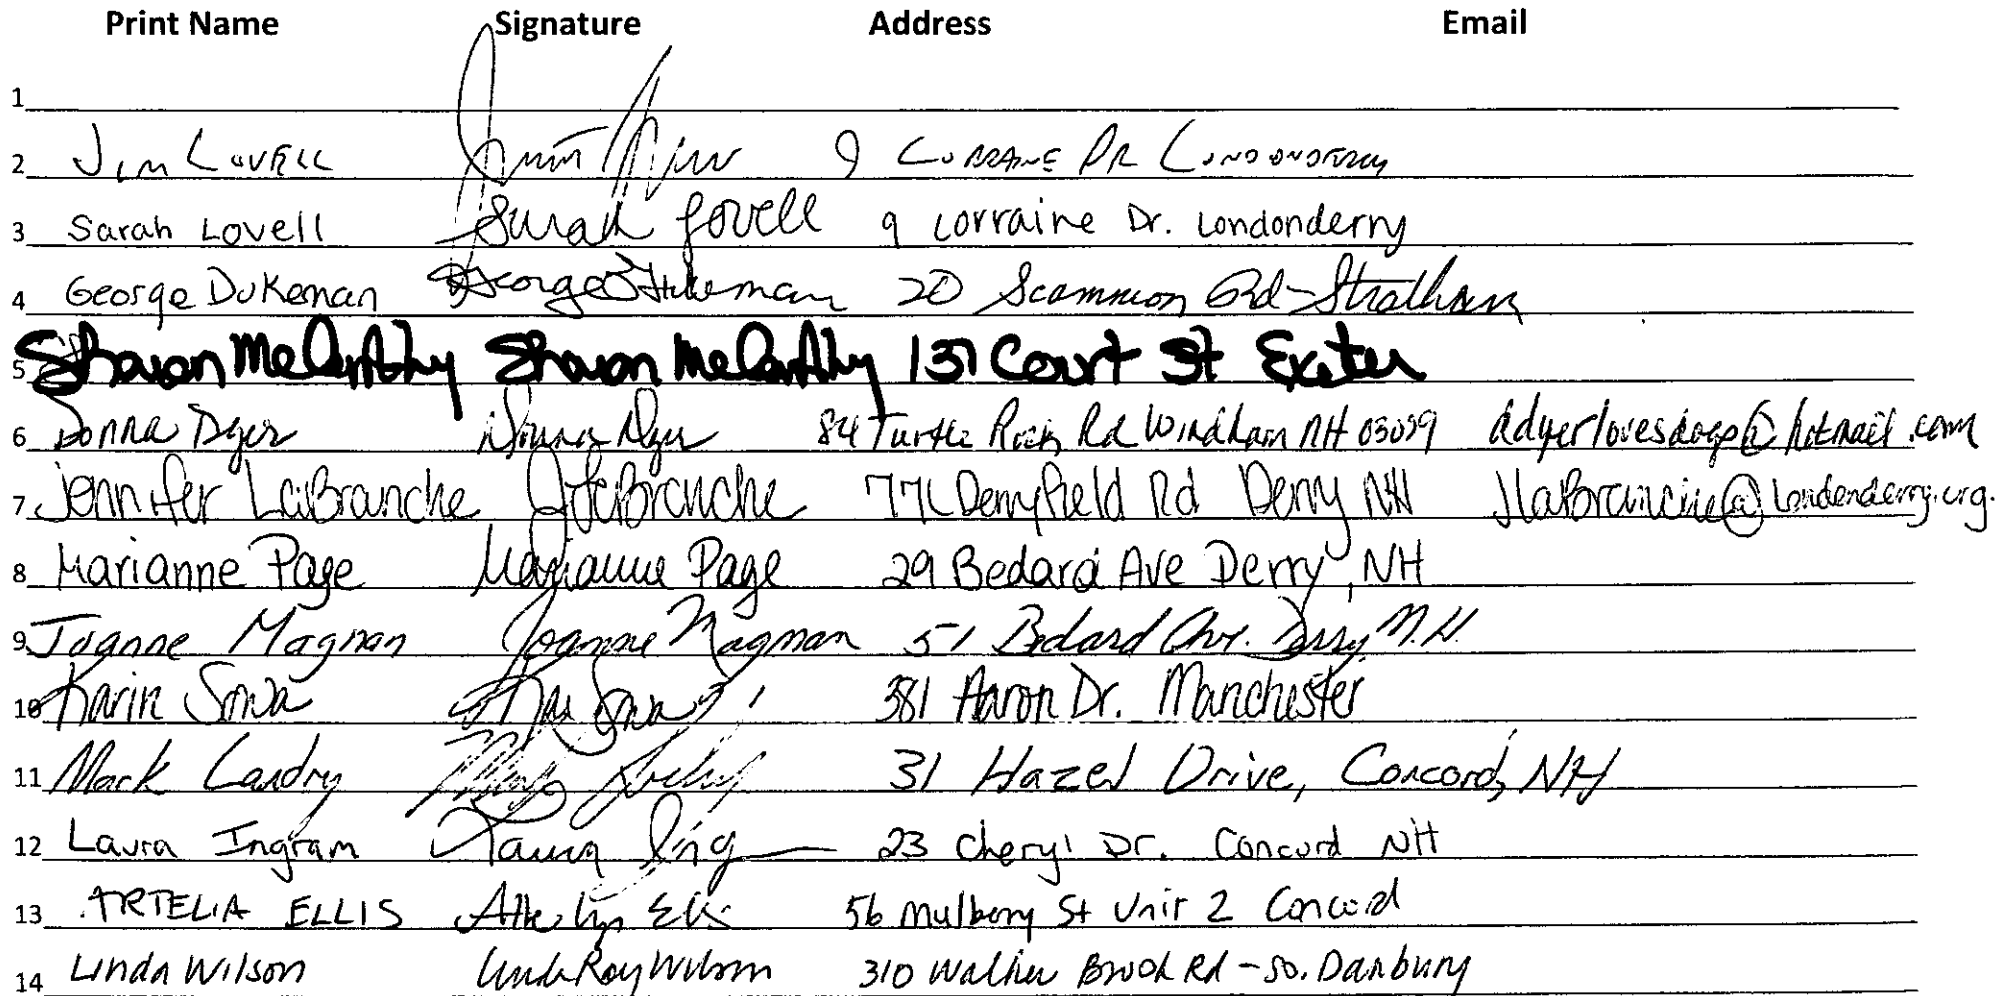 Print Name Signature Address Email
1
2 Jim Lovell 9 Lorraine Dr Londonderry
3 Sarah Lovell Sarah Lovell 9 Lorraine Dr. Londonderry
4 George Dukeman George Dukeman 20 Scammon Rd - Stratham
5 Sharon McCarthy Sharon McCarthy 137 Court St Exeter
6 Donna Dyer Donna Dyer 84 Turtle Rock Rd Windham NH
7 Jennifer LaBranche JLaBranche Derryfield Rd Derry NH
8 Marianne Page Marianne Page 29 Bedard Ave Derry, NH
9 Joanne Magnan Joanne Magnan 51 Bedard Ave. Derry N.H.
10 Karin Sowa 381 Aaron Dr. Manchester
11 Mark Landry 31 Hazel Drive, Concord, NH
12 Laura Ingram Laura Ing 23 Cheryl Dr. Concord NH
13 ARTELIA ELLIS 56 Mulberry St Unit 2 Concord
14 Linda Wilson Linda Ray Wilson 310 Walker Brook Rd - So. Danbury